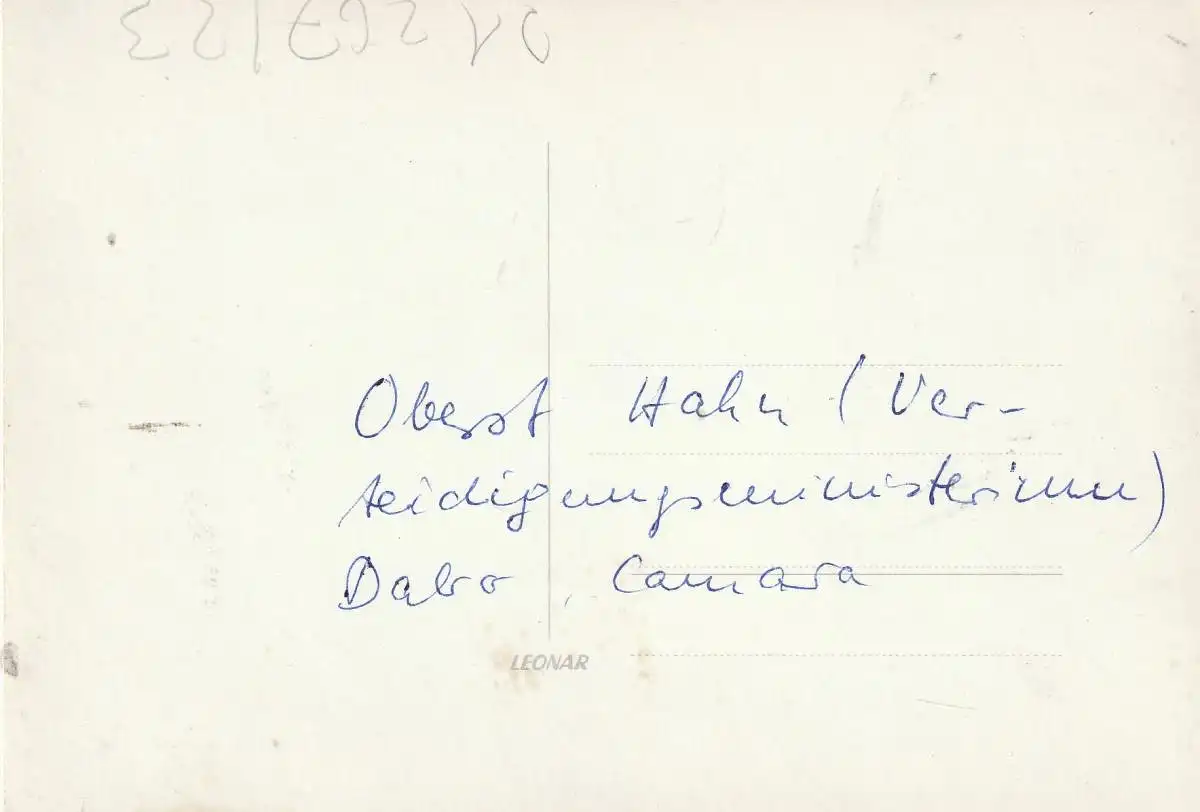 Oberst Hahn (Ver-
teidigungsministerium)
Dabo, Camara
LEONAR